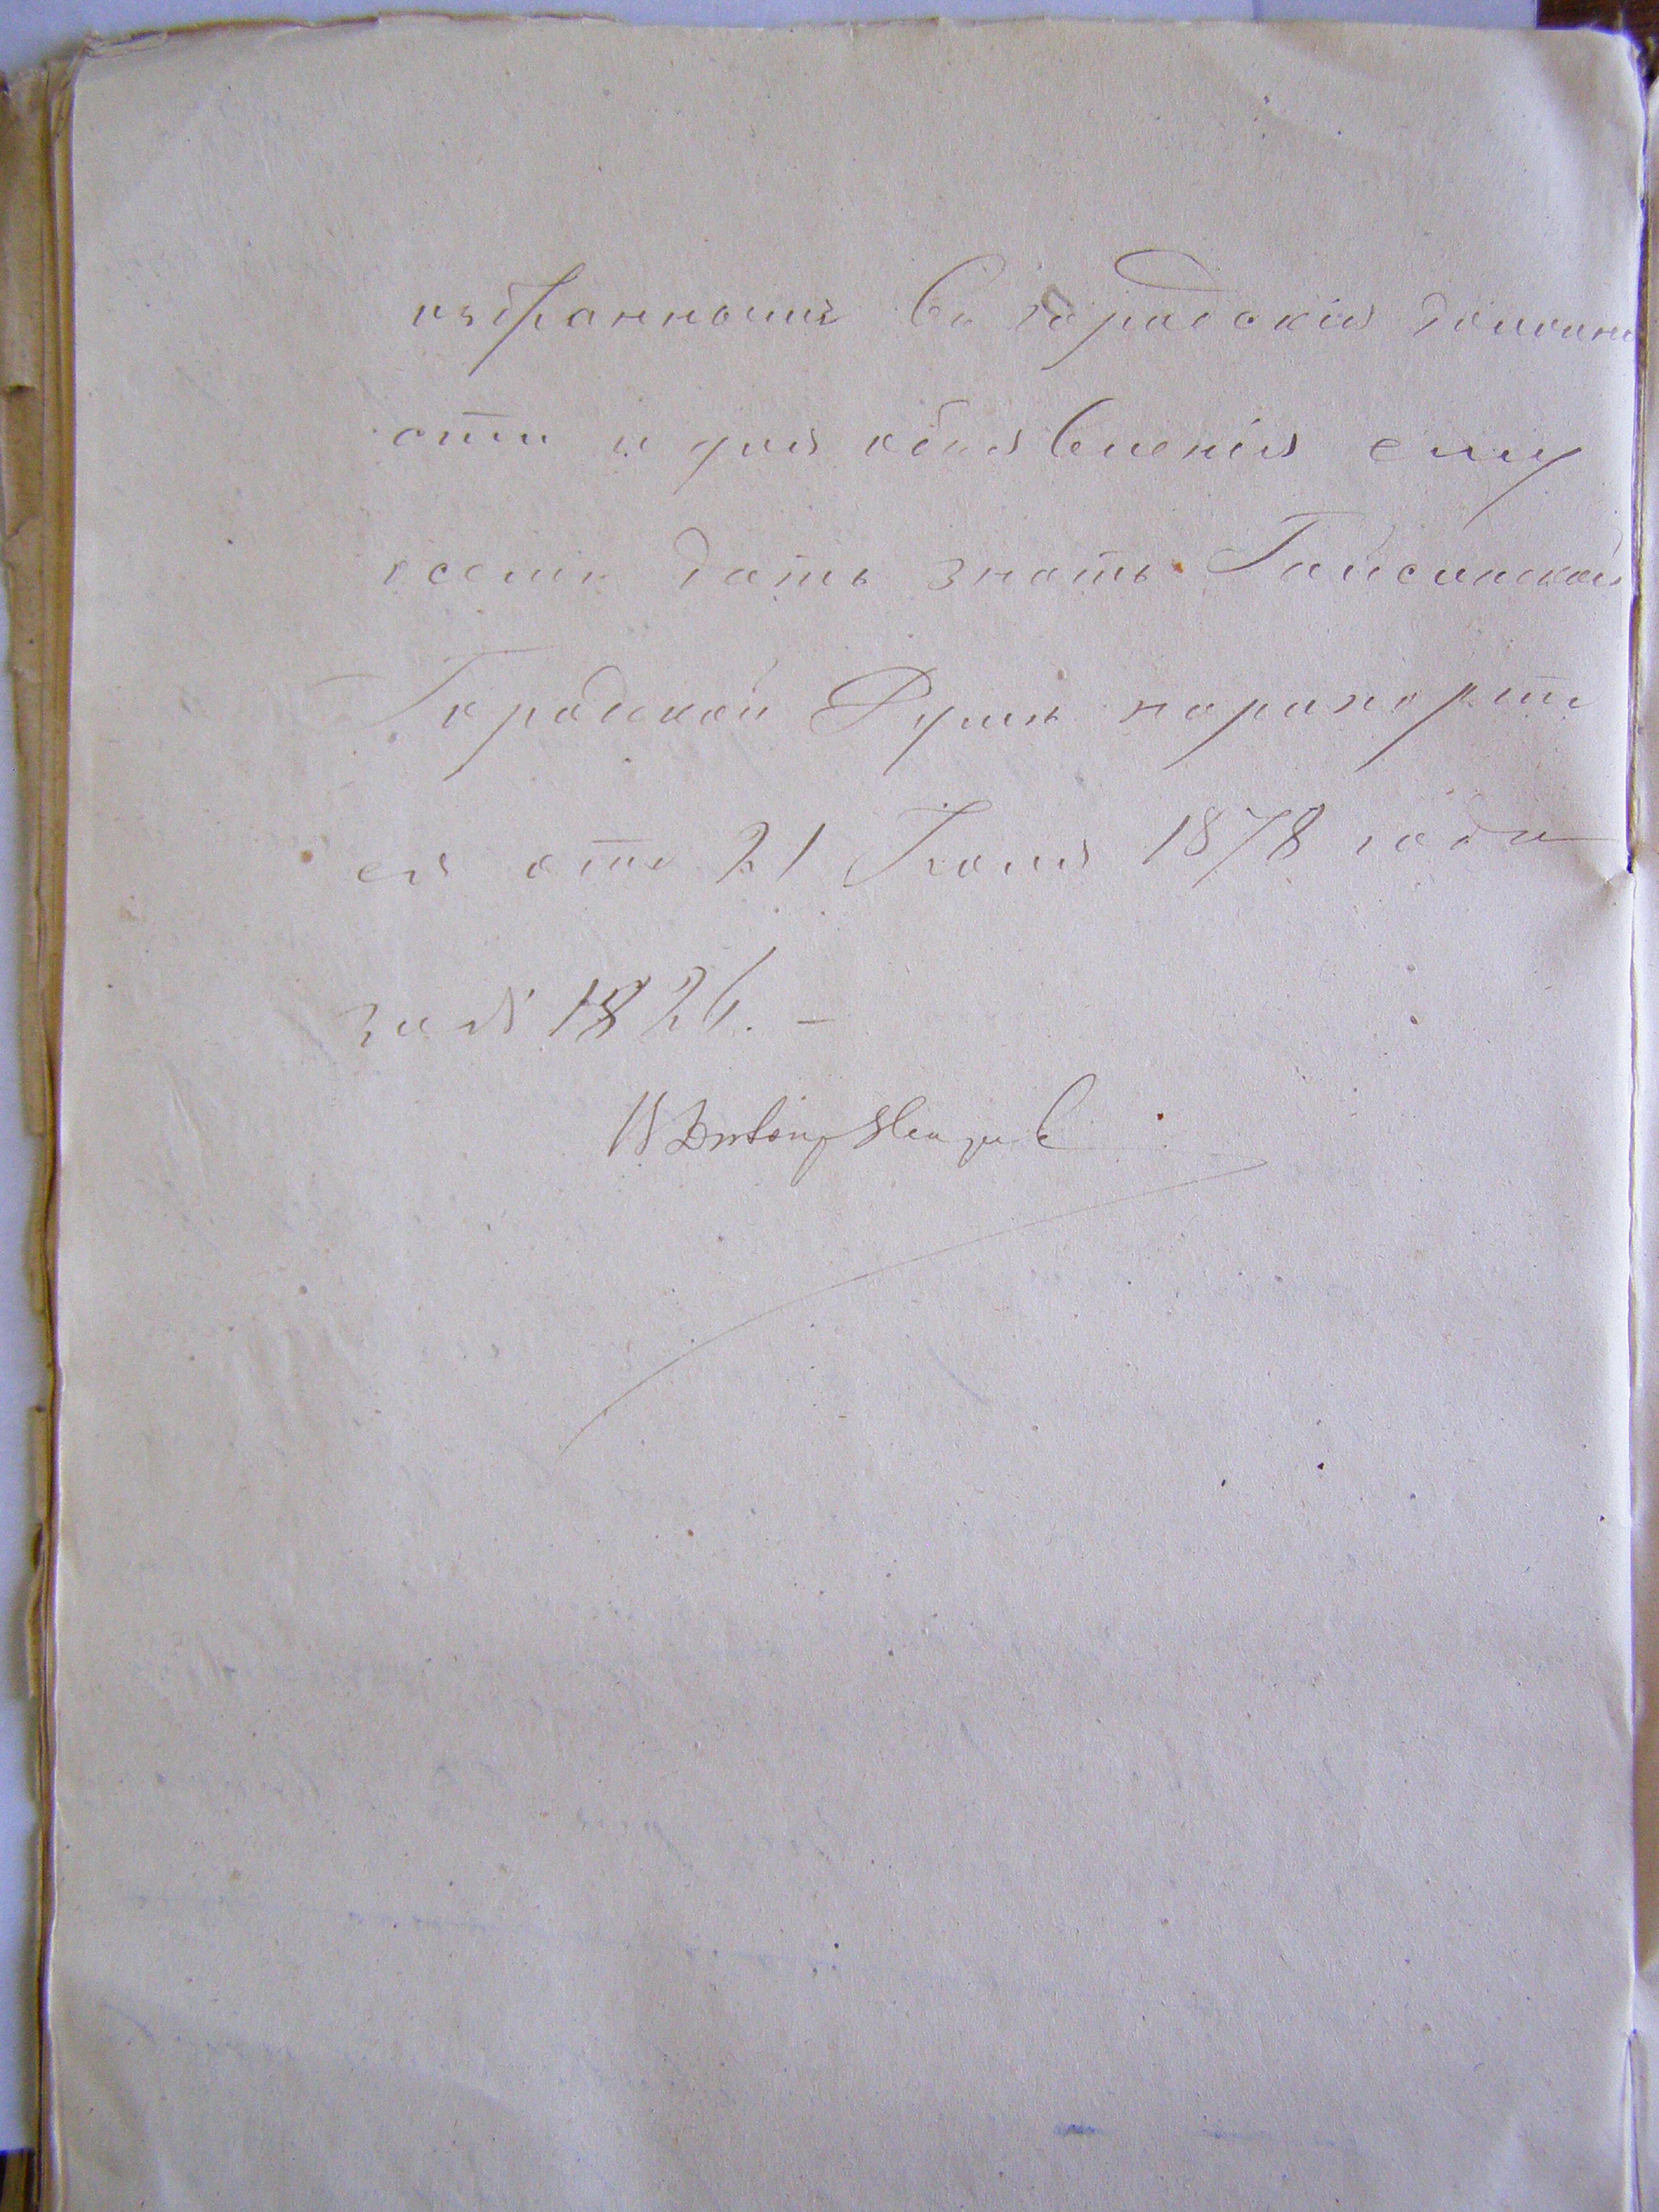 избранному въ городскія должно
сти и для объявленія ему
о семъ дать знать Гайсинской
Городской Думѣ на рапортъ
ея отъ 21 Іюля 1878 года
за № 1826. –